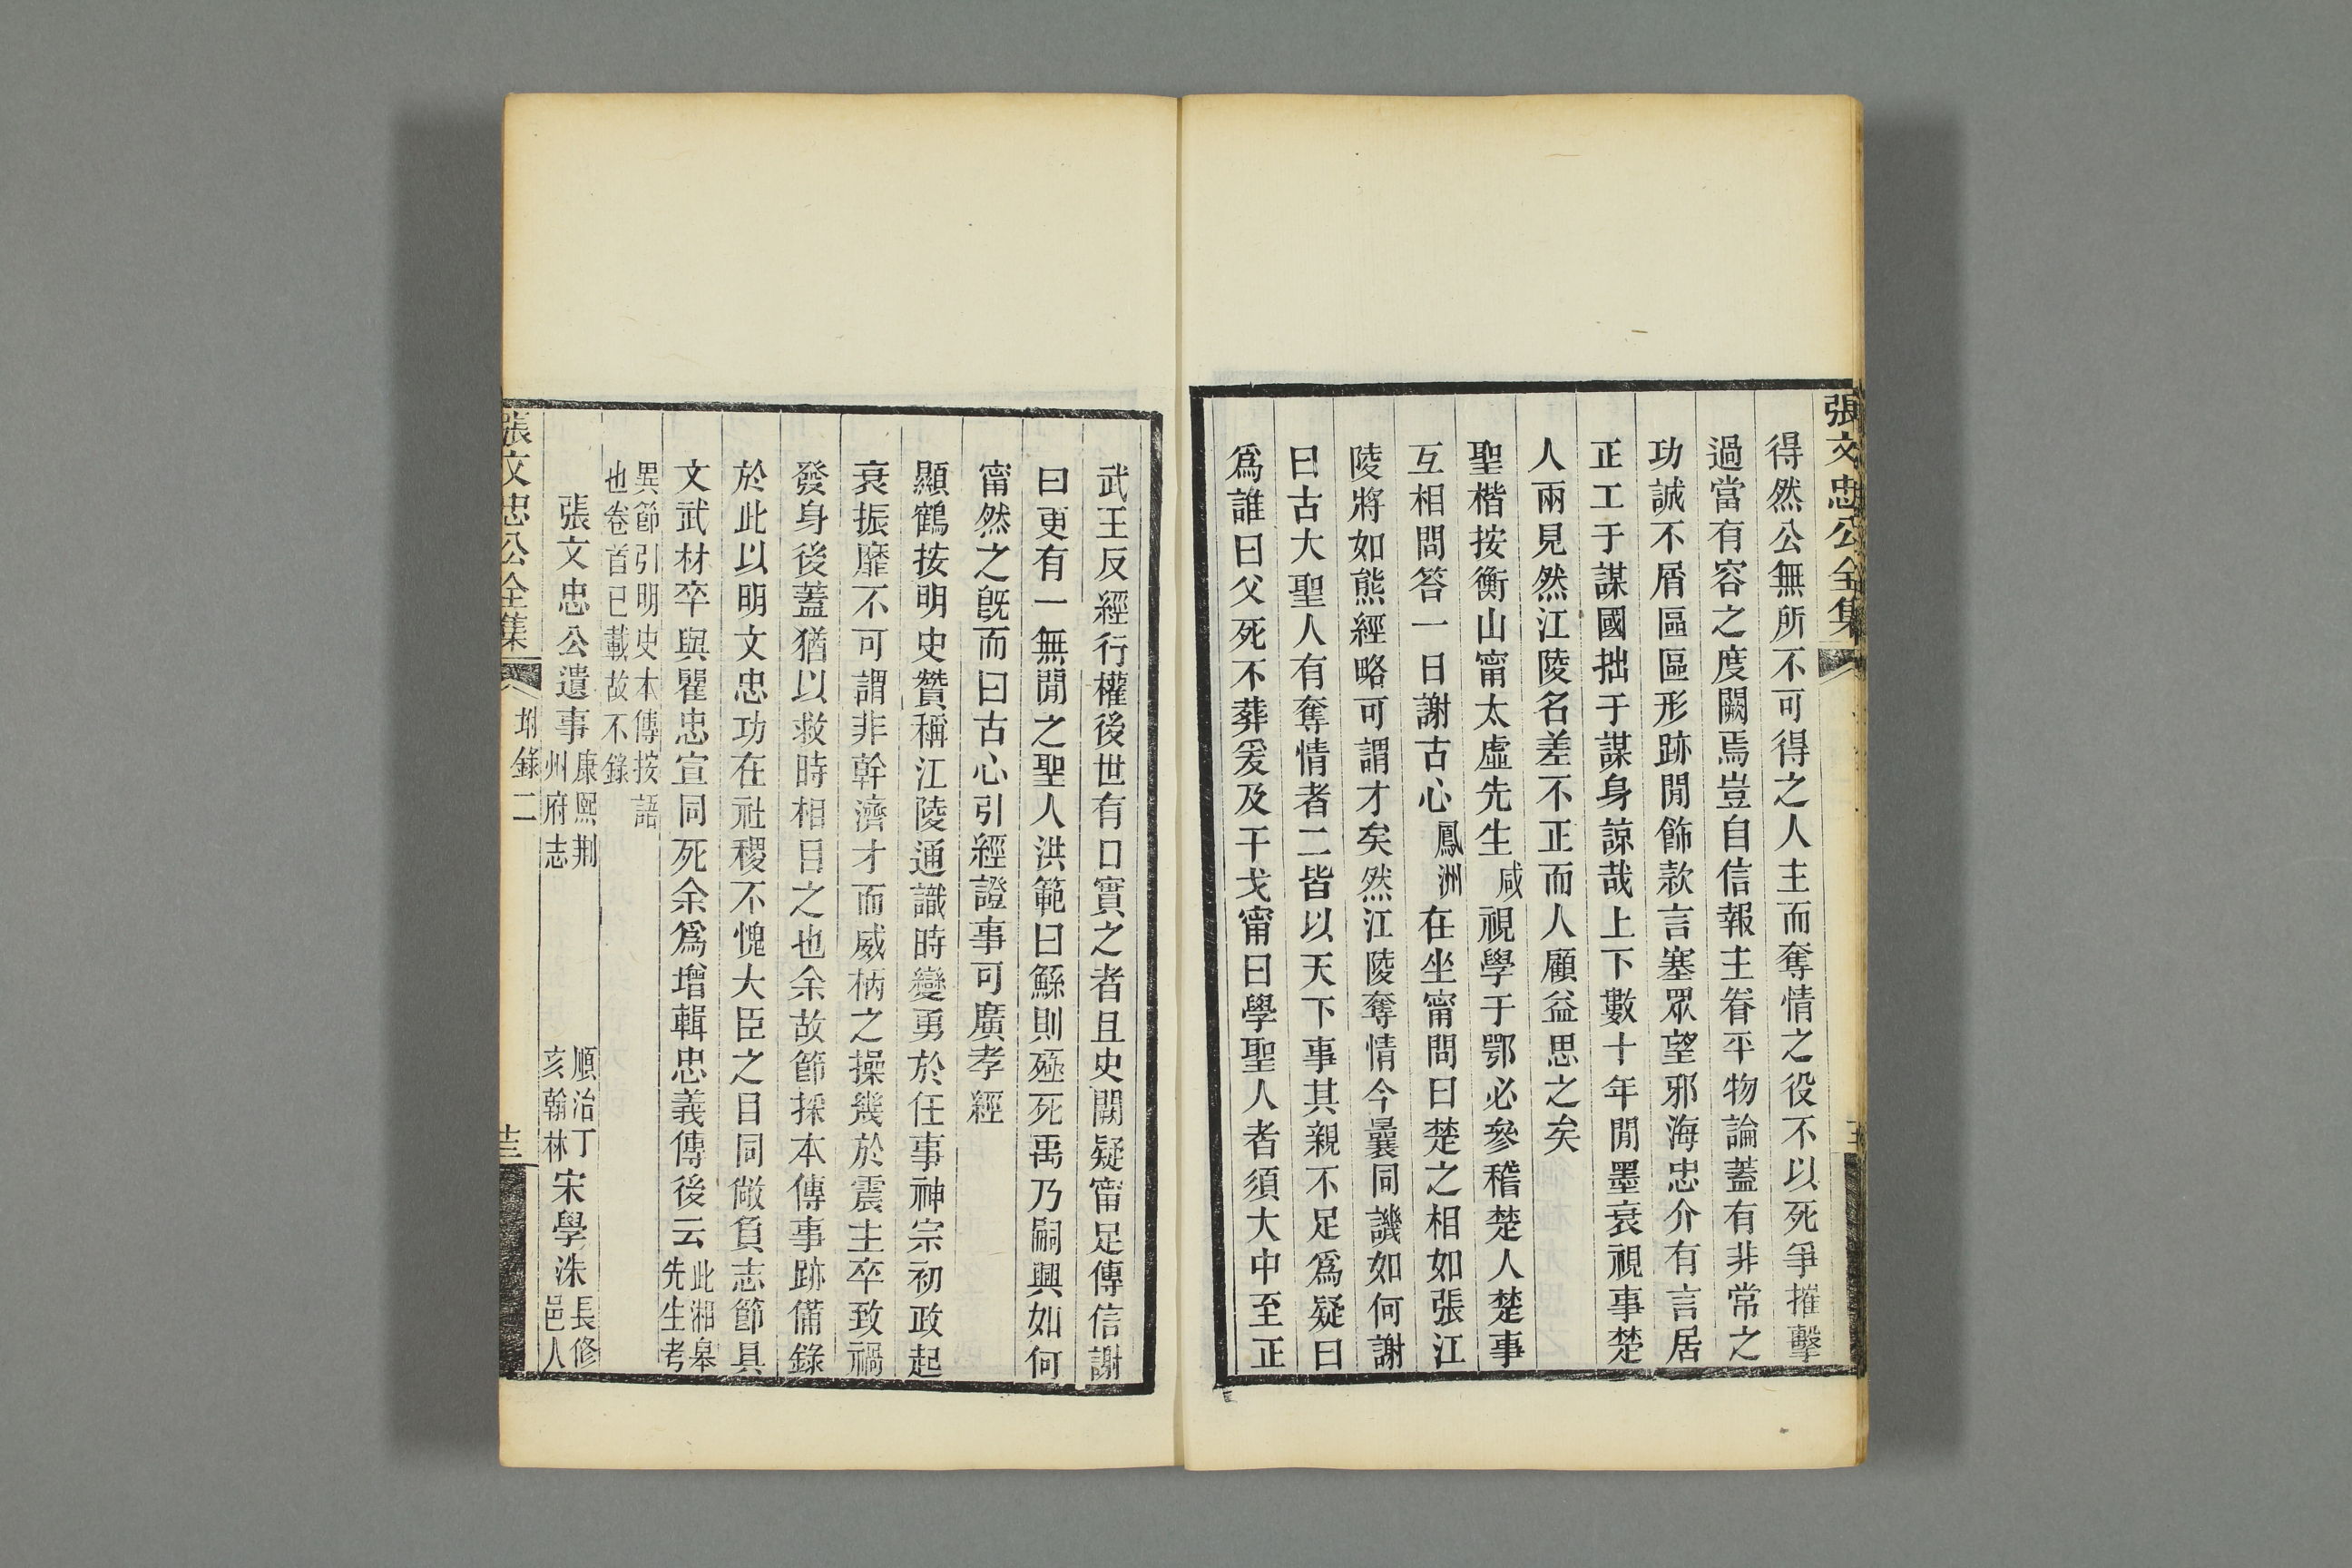 張文忠公全集
得然公無所不可得之人主而奪情之役不以死爭摧擊
過當有容之度闕焉豈自信報主眷平物論蓋有非常之
功誠不屑區區形跡閒飾款言塞眾望邪海忠介有言居
正工于謀國拙于謀身諒哉上下數十年閒墨衰視事楚
人兩見然江陵名差不正而人顧益思之矣
聖楷按衡山甯太虛先生咸視學于鄂必參稽楚人楚事
互相問答一日謝古心鳳洲在坐甯問曰楚之相如張江
陵將如熊經略可謂才矣然江陵奪情今曩同譏如何謝
曰古大聖人有奪情者二皆以天下事其親不足為疑曰
爲誰曰父死不葬爰及干戈甯曰學聖人者須大中至正
武王反經行權後世有口實之者且史闕疑甯足傳信謝
曰更有一無閒之聖人洪範曰鯀則殛死禹乃嗣興如何
甯然之旣而曰古心引經證事可廣孝經
顯鶴按明史贊稱江陵通識時變勇於任事神宗初政起
衰振靡不可謂非幹濟才而威柄之操幾於震主卒致禍
發身後蓋猶以救時相目之也余故節採本傳事跡備錄
於此以明文忠功在社稷不愧大臣之目同敞負志節具
文武材卒與瞿忠宣同死余爲增輯忠義傳後云此湘皋
先生考
異節引明史本傳按語
也卷首已載故不錄
張文忠公遺事康熙荆
州府志
順治丁
亥翰林宋學洙長修
邑人
張文忠公全集
坿錄二